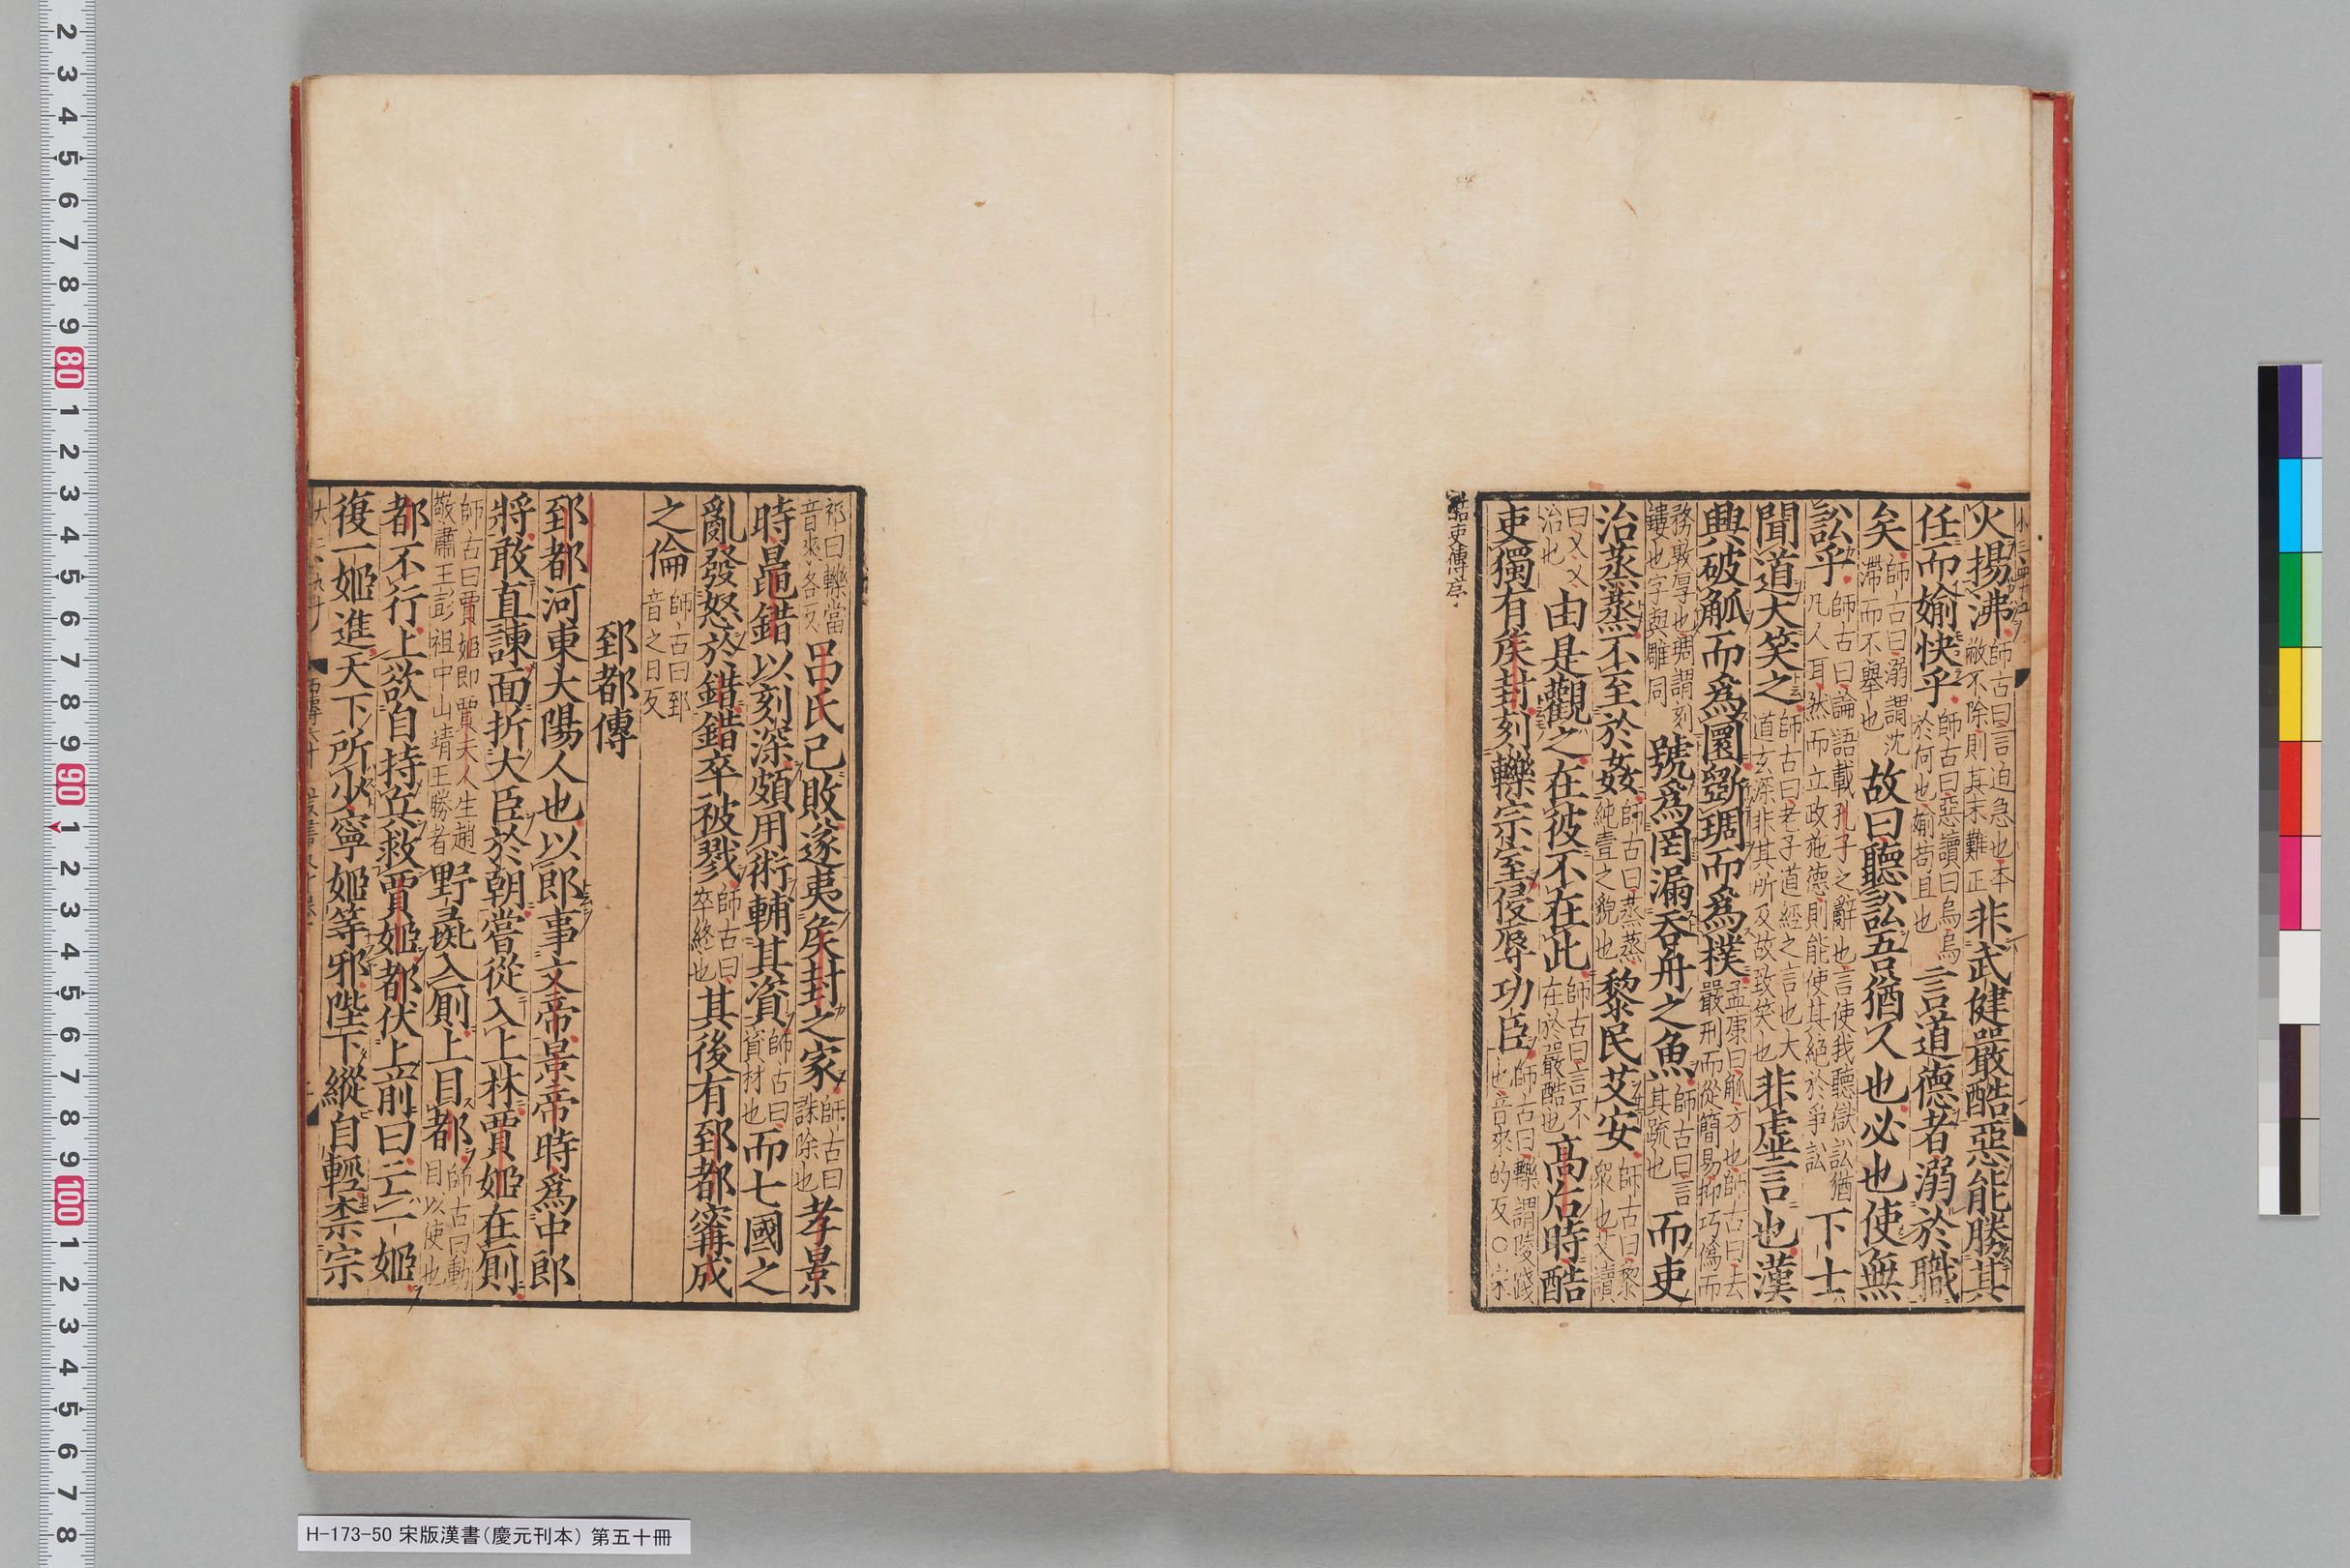 火揚沸師古曰言迫急也本敝不除則其末難正非武健嚴酷惡能勝其
任而媮快乎師古曰惡讀曰烏烏於何也媮苟且也言道德者溺於職
矣師古曰溺謂沈滯而不舉也故曰聽訟吾猶人也必也使無
訟乎師古曰論語載孔子之辭也言使我聽獄訟猶凡人耳然而立政施德則能使其絕於爭訟下士
聞道大笑之師古曰老子道經之言也大道玄深非其所及故致笑也非虛言也漢
興破觚而爲圜斲琱而爲樸孟康曰觚方也師古曰去嚴刑而從簡易抑巧僞而
務敦厚也琱謂刻鏤也字與雕同號爲罔漏吞舟之魚師古曰言其疏也而吏
治蒸蒸不至於姦師古曰蒸蒸純壹之貌也黎民艾安師古曰黎衆也艾讀
曰乂乂治也由是觀之在彼不在此師古曰言不在於嚴酷也高后時酷
吏獨有侯封刻轢宗室侵辱功臣師古曰轢謂陵踐也音來的反○宋
酷吏傳序
祁曰轢當音來各反呂氏已敗遂夷侯封之家師古曰誅除也孝景
時鼂錯以刻深頗用術輔其資師古曰資材也而七國之
亂發怒於錯錯卒被戮師古曰卒終也其後有郅都甯成
之倫師古曰郅音之日反
郅都傳
郅都河東大陽人也以郎事文帝景帝時爲中郎
將敢直諫面折大臣於朝嘗從入上林賈姬在厠
師古曰賈姬即賈夫人生趙敬肅王彭祖中山靖王勝者野彘入厠上目都師古曰動目以使也
都不行上欲自持兵救賈姬都伏上前曰亡一姬
復一姬進天下所少寧姬等邪陛下縱自輕柰宗
H-173-50 宋版漢書(慶元刊本) 第五十冊